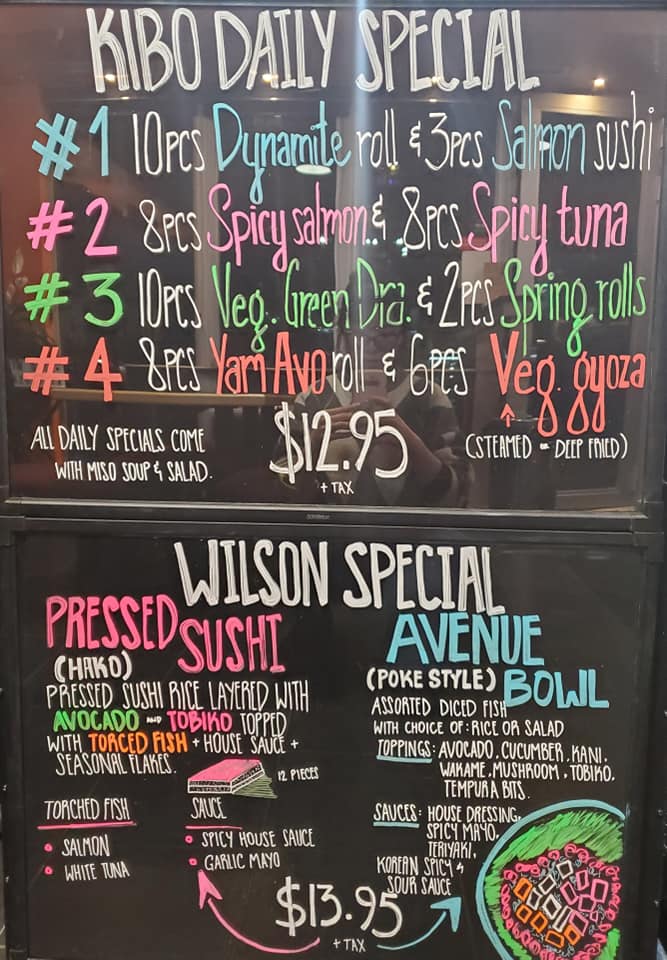 KIBO DAILY SPECIAL
#1 10PCS Dynamite roll & 3PCS Salmon sushi
#2 8PCS Spicy salmon & 8PCS Spicy tuna
#3 10PCS Veg. Green Dra. & 2PCS Spring rolls
#4 8PCS Yam Avo roll & 6PCS Veg. gyoza
(STEAMED OR DEEP FRIED)
ALL DAILY SPECIALS COME
WITH MISO SOUP & SALAD.
$12.95
+ TAX
WILSON SPECIAL
PRESSED SUSHI
(HAKO)
PRESSED SUSHI RICE LAYERED WITH
AVOCADO AND TOBIKO TOPPED
WITH TORCED FISH + HOUSE SAUCE +
SEASONAL FLAKES.
12 PIECES
TORCHED FISH
• SALMON
• WHITE TUNA
SAUCE
• SPICY HOUSE SAUCE
• GARLIC MAYO
AVENUE
(POKE STYLE) BOWL
ASSORTED DICED FISH
WITH CHOICE OF: RICE OR SALAD
TOPPINGS: AVOCADO, CUCUMBER, KANI,
WAKAME, MUSHROOM, TOBIKO,
TEMPURA BITS.
SAUCES: HOUSE DRESSING,
SPICY MAYO,
TERIYAKI,
KOREAN SPICY &
SOUR SAUCE
$13.95
+ TAX